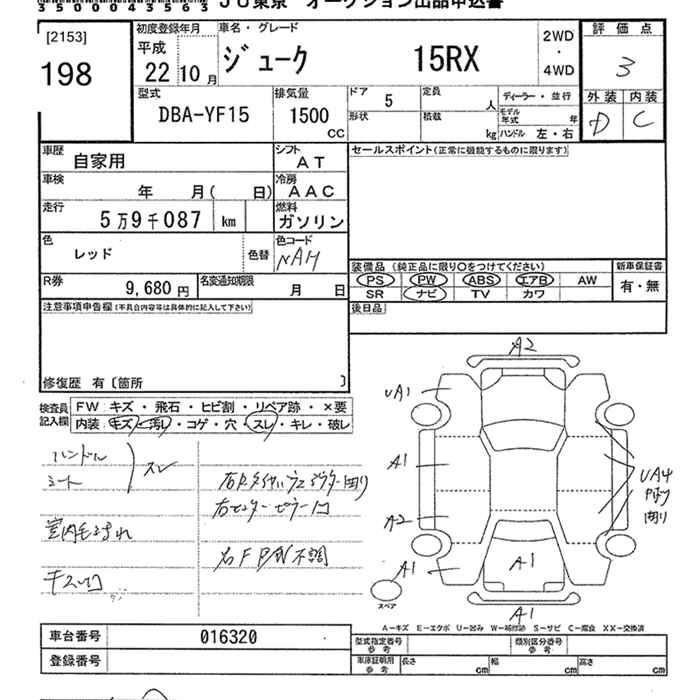 3 5 0 0 0 4 3 5 5 6 3
JU東京 オークション出品申込書
[2153]
198
初度登録年月
平成
22 10月
車名・グレード
ジューク 15RX
2WD
・
4WD
評価点
3
外装 内装
D C
型式
DBA-YF15
排気量
1500
CC
ドア 5
形状
定員 人
積載 kg
ディーラー・並行
モデル年式 年
ハンドル 左・右
車歴 自家用
シフト AT
セールスポイント(正常に機能するものに限ります)
車検 年 月( 日)
冷房 AAC
走行 5万9千087 km
燃料 ガソリン
色 レッド
色替
色コード NAH
装備品 (純正品に限り○をつけてください)
新車保証書
PS PW ABS エアB AW
SR ナビ TV カワ
有・無
R券 9,680円
名変通知期限 月 日
後日品
注意事項申告欄(不具合内容等は具体的に記入して下さい)
修復歴 有〔箇所 〕
検査員記入欄
FW キズ・飛石・ヒビ割・リペア跡・×要
内装 キズ・汚レ・コゲ・穴・スレ・キレ・破レ
ハンドル
シート
スレ
右センターピラー凹
右F P/W不調
A2
UA1
A1
A2
A1
UA4
A1
A1
スペア
A-キズ E-エクボ U-凹み W-補修跡 S-サビ C-腐食 XX-交換済
車台番号 016320
登録番号
型式指定番号 参考
類別区分番号 参考
車庫証明用 参考
長さ cm 幅 cm 高さ cm